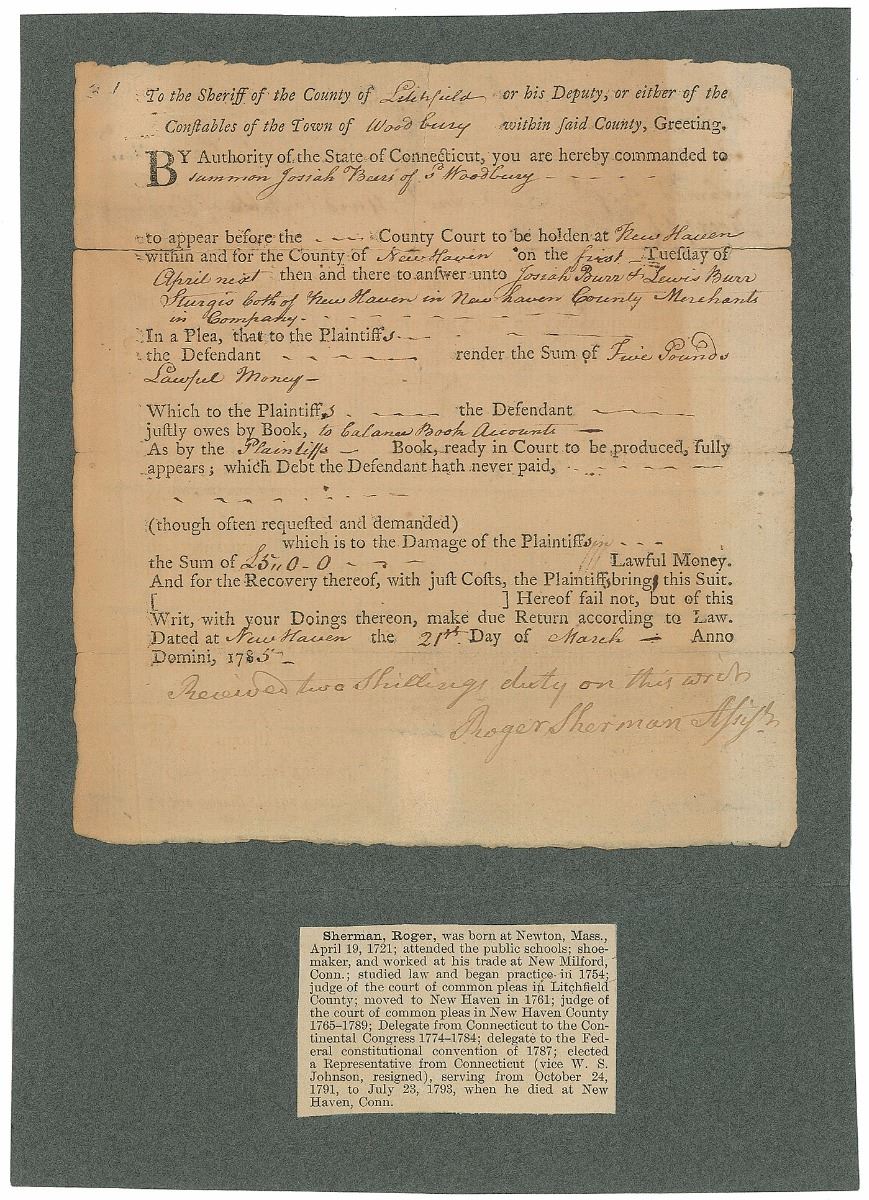 To the Sheriff of the County of Litchfield or his Deputy, or either of the
Constables of the Town of Woodbury within said County, Greeting.
BY Authority of the State of Connecticut, you are hereby commanded to
summon Josiah Beers of Sd Woodbury - - - - -
to appear before the - - - County Court to be holden at New Haven
within and for the County of New Haven on the first Tuesday of
April next then and there to answer unto Josiah Burr & Lewis Burr
Sturgis both of New Haven in New haven County Merchants
in Company - - - - - - - -
In a Plea, that to the Plaintiffs - - -
the Defendant - - - - render the Sum of Five Pounds
Lawful Money -
Which to the Plaintiffs - - - - the Defendant - - - -
justly owes by Book, to balance Book Accounts -
As by the Plaintiffs - Book, ready in Court to be produced, fully
appears; which Debt the Defendant hath never paid, - - - - -
- - - - - - - -
(though often requested and demanded)
which is to the Damage of the Plaintiffs - - -
the Sum of £5,,0-0 - - - Lawful Money.
And for the Recovery thereof, with just Costs, the Plaintiffs bring this Suit.
[ ] Hereof fail not, but of this
Writ, with your Doings thereon, make due Return according to Law.
Dated at New Haven the 21st Day of March - Anno
Domini, 1785 -
Received two Shillings duty on this writ
Roger Sherman Assist
Sherman, Roger, was born at Newton, Mass.,
April 19, 1721; attended the public schools; shoe-
maker, and worked at his trade at New Milford,
Conn.; studied law and began practice in 1754;
judge of the court of common pleas in Litchfield
County; moved to New Haven in 1761; judge of
the court of common pleas in New Haven County
1765–1789; Delegate from Connecticut to the Con-
tinental Congress 1774–1784; delegate to the Fed-
eral constitutional convention of 1787; elected
a Representative from Connecticut (vice W. S.
Johnson, resigned), serving from October 24,
1791, to July 23, 1793, when he died at New
Haven, Conn.